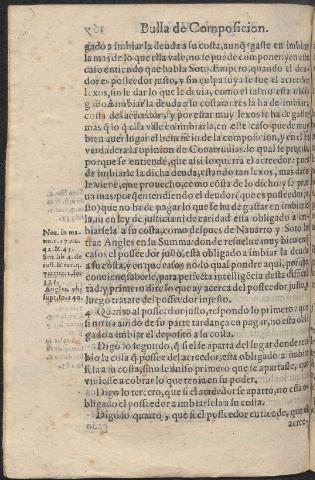 Bulla de Composicion.
gado a imbiar la deuda a su costa, aunq̃ gaste en imbiar
la mas de lo que ella vale, no se puede componer, y en este
caso entiendo que habla Soto. Empero, quando el deu
dor es posseedor justo, y sin culpa suya se fue el acreedor
lexos, sin le dar lo que le deuia, como el justo està obli
gado à imbiar la deuda a su costa
costa del acreedor, y por estar muy lexos se ha de gastar
mas q̃ lo q̃ ella vale en imbiarla, en este caso puede muy
bien auer lugar el beneficio de la composicion, y en el es
verdadera la opinion de Couarruuias: lo qual se practica
porque se entiende, que assi lo querra el acreedor: pues
de imbiarle la dicha deuda, estando tan lexos, mas daño
le viene, que prouecho, como consta de lo dicho: y se prue
ua mas: porque teniendo el deudor (que es posseedor ju
sto) que no ha de pagar lo que se ha de gastar en imbiar
la, ni en ley de justicia ni de caridad està obligado a im
biarsela a su costa, como despues de Nauarro y Soto lo
trae Angles en su Summa: donde resuelue muy bien en q̃
casos el posseedor justo, està obligado a imbiar la deuda
a su costa, y en que casos no: lo qual pondre aqui, por que
conuiene saberlo, para perfecta intelligẽcia desta difficul
tad: y primero dire lo que ay acerca del posseedor justo, y
luego tratare del posseedor injusto.
Quanto al posseedor justo, respondo lo primero: que
si no ha auido de su parte tardança en pagar, no està obli
gado a imbiar el deposito a su costa.
Digo lo segundo, q̃ si el se aparta del lugar donde reci
bio la cosa q̃ possee del acreedor: està obligado a imbiar
sela a su costa, sino le auiso primero que se apartasse, que
viniesse a cobrar lo que tenia en su poder.
Digo lo tercero, que si el acreedor se aparto, no està o-
bligado el posseedor a imbiarsela a su costa.
Digo lo quarto, que si el posseedor entiende, que el
acree-
Nau. in ma
nu. c. 17. nu.
42. & 43.
Sot. lib. 4. de
Angles. vbi
sup. fo. 140.